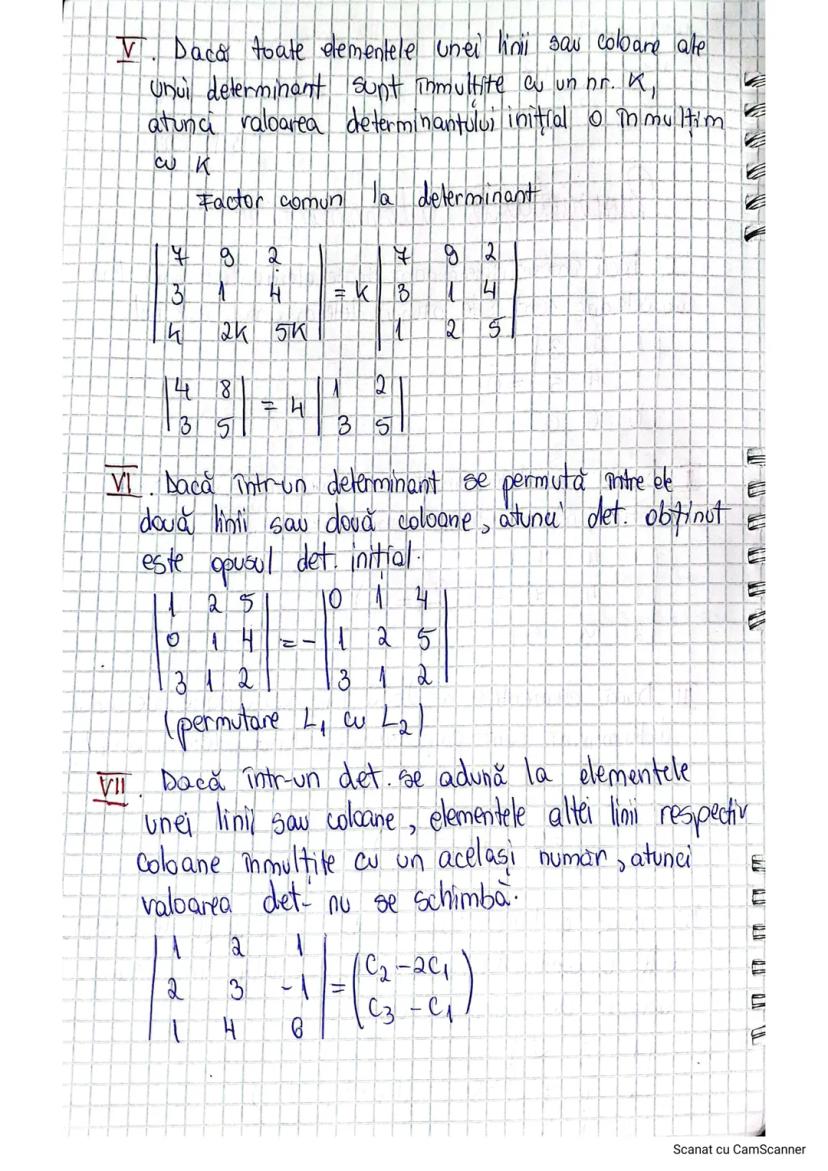 V. Dacă toate elementele unei linii sau coloane ale
unui determinant sunt înmulțite cu un nr. K,
atunci valoarea determinantului inițial o înmulțim
cu K
Factor comun la determinant
| 7 9 2 | | 7 9 2 |
| 3 1 4 | = K | 3 1 4 |
| K 2K 5K | | 1 2 5 |
| 4 8 | = 4 | 1 2 |
| 3 5 | | 3 5 |
VI. Dacă într-un determinant se permută între ele
două linii sau două coloane, atunci det. obținut
este opusul det. inițial.
| 1 2 5 | | 0 1 4 |
| 0 1 4 | = - | 1 2 5 |
| 3 1 2 | | 3 1 2 |
(permutare L₁ cu L₂)
VII. Dacă într-un det. se adună la elementele
unei linii sau coloane, elementele altei linii respectiv
coloane înmulțite cu un același număr, atunci
valoarea det. nu se schimbă.
| 1 2 1 | (C₂ - 2C₁)
| 2 3 -1 | = (C₃ - C₁)
| 1 4 6 |
Scanat cu CamScanner